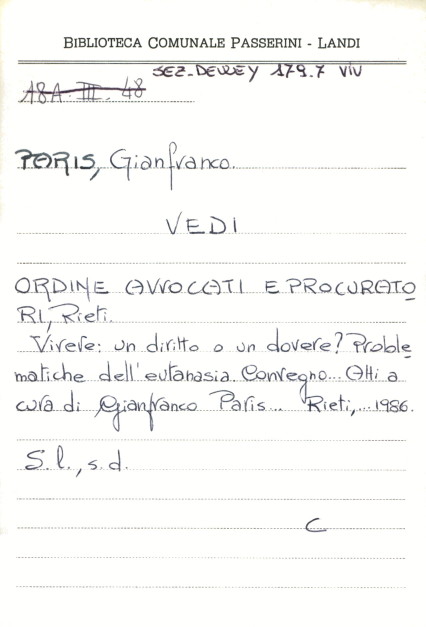 BIBLIOTECA COMUNALE PASSERINI - LANDI
SEZ. DEWEY 179.7 VIV
A8A. III. 48
PARIS, Gianfranco.
VEDI
ORDINE AVVOCATI E PROCURATO
RI, Rieti.
Vivere: un diritto o un dovere? Proble
matiche dell'eutanasia. Convegno... Atti a
cura di Gianfranco Paris... Rieti,... 1986.
S.l., s.d.
C